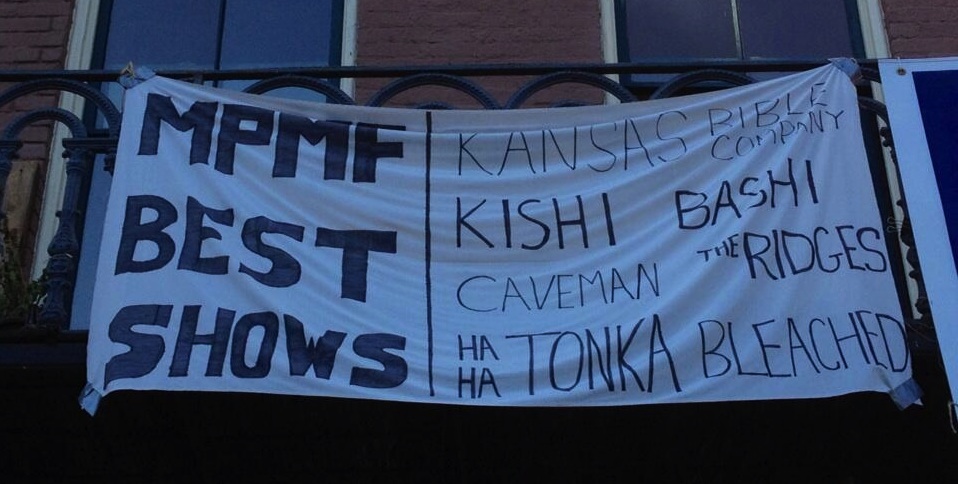 MPMF
BEST
SHOWS
KANSAS BIBLE
COMPANY
KISHI BASHI
CAVEMAN THE RIDGES
HA HA TONKA BLEACHED